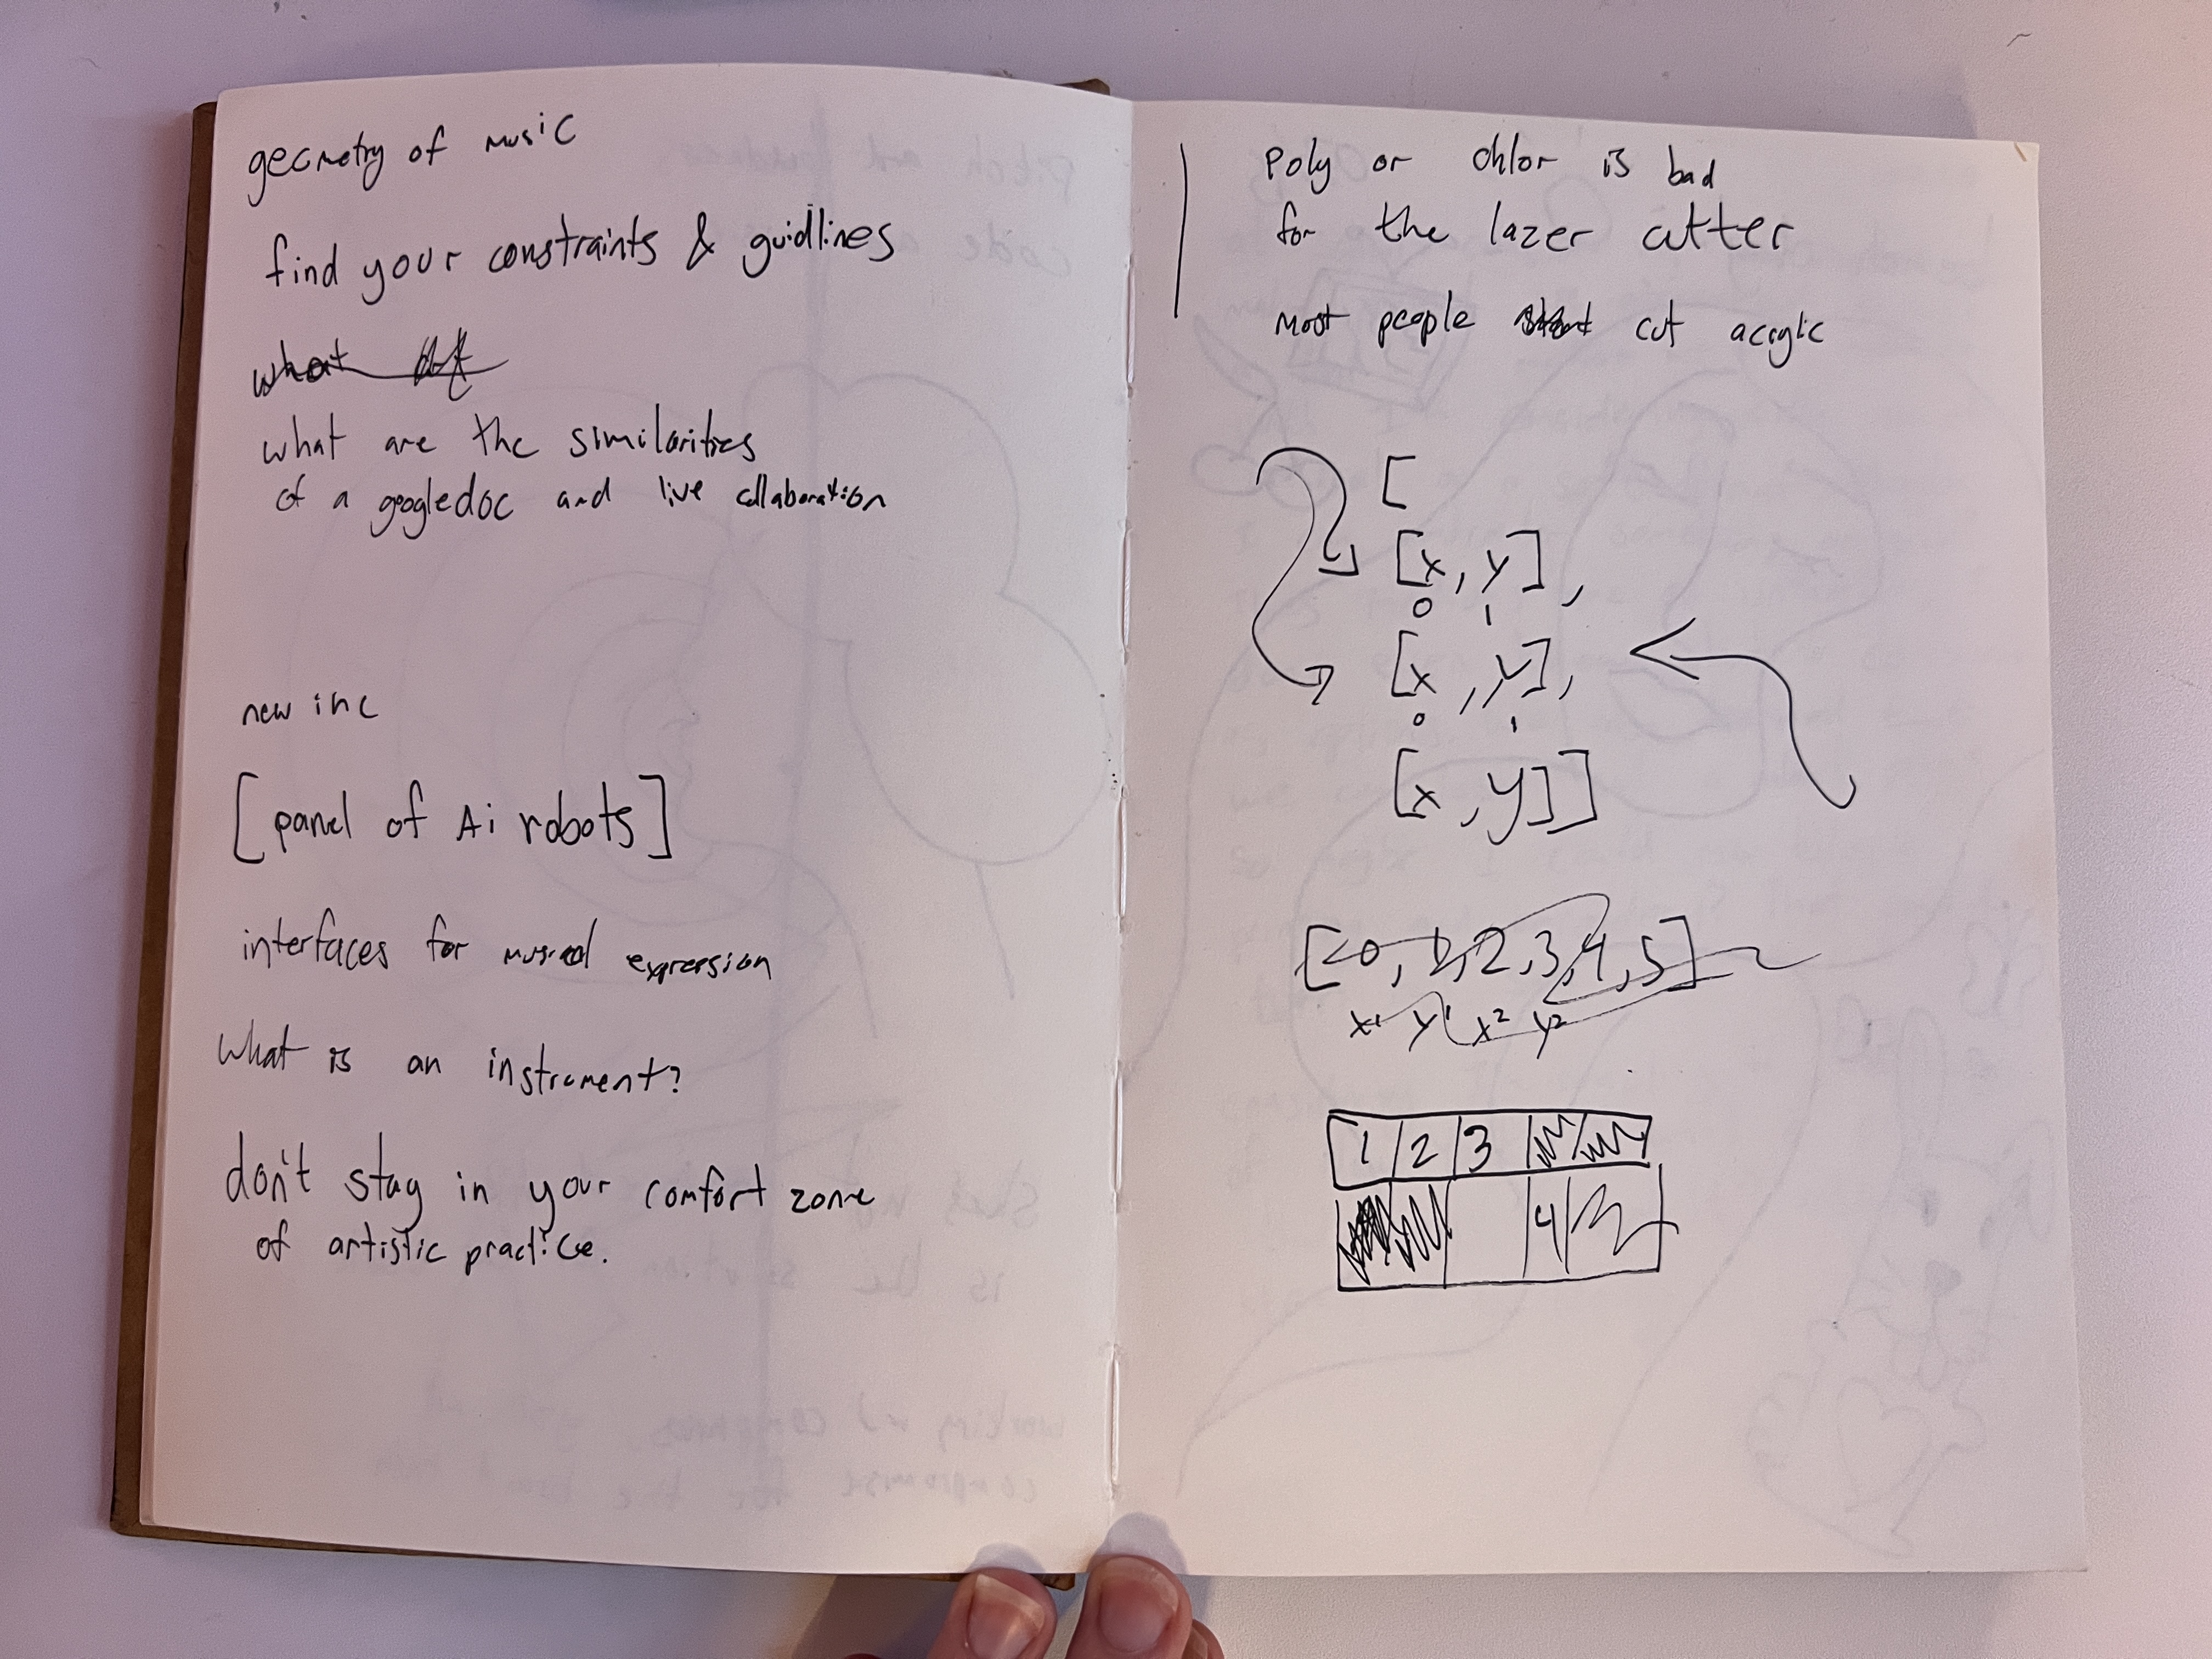 geometry of music
find your constraints & guidlines
what
what are the similarities
of a googledoc and live collaboration
new inc
[panel of Ai robots]
interfaces for musical expression
what is an instrument?
don't stay in your comfort zone
of artistic practice.
poly or chlor is bad
for the lazer cutter
most people cut acrylic
[
[x, y],
0 1
[x, y],
0 1
[x, y]]
[0, 1, 2, 3, 4, 5]
x¹ y¹ x² y²
1 2 3
4